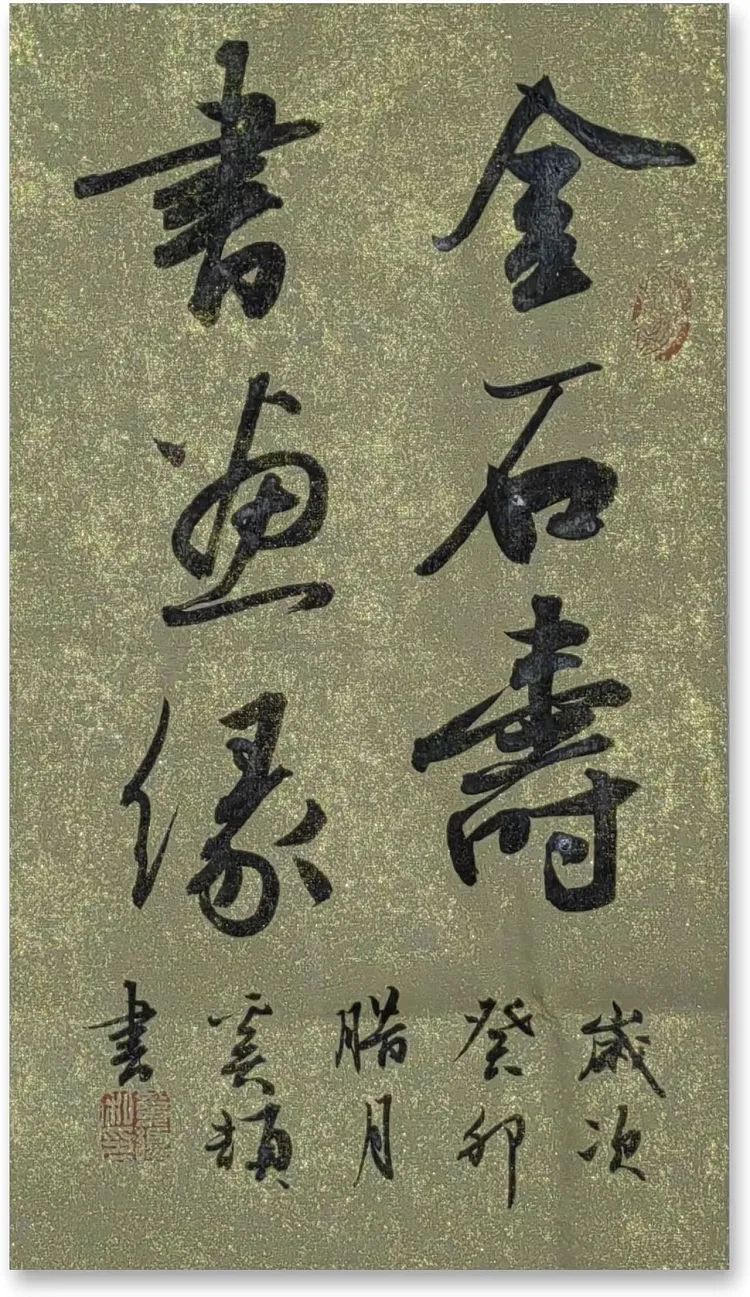 金石壽
書画缘
歲次
癸卯
腊月
書